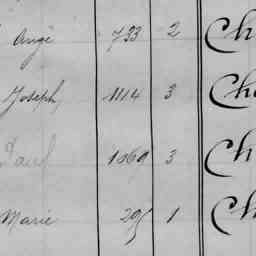 Ange 733 2 Ch
Joseph 1114 3 Ch
Paul 1069 3 Ch
Marie 295 1 Ch